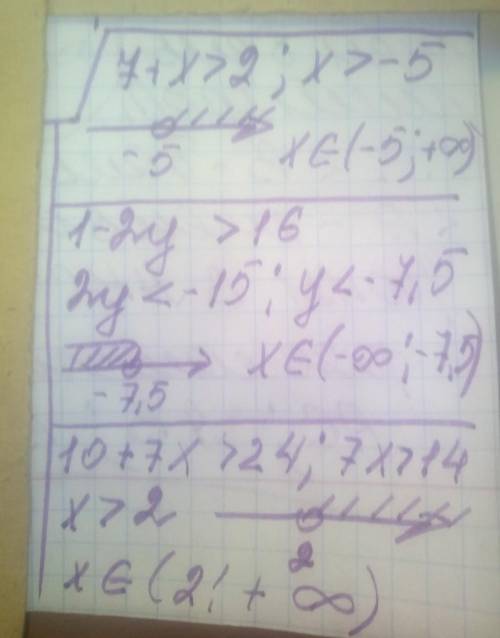 7+x>2; x>-5
-5 x∈(-5;+∞)
1-2y >16
2y<-15; y<-7,5
x∈(-∞;-7,5)
-7,5
10+7x>24; 7x>14
x>2
2
x∈(2;+∞)